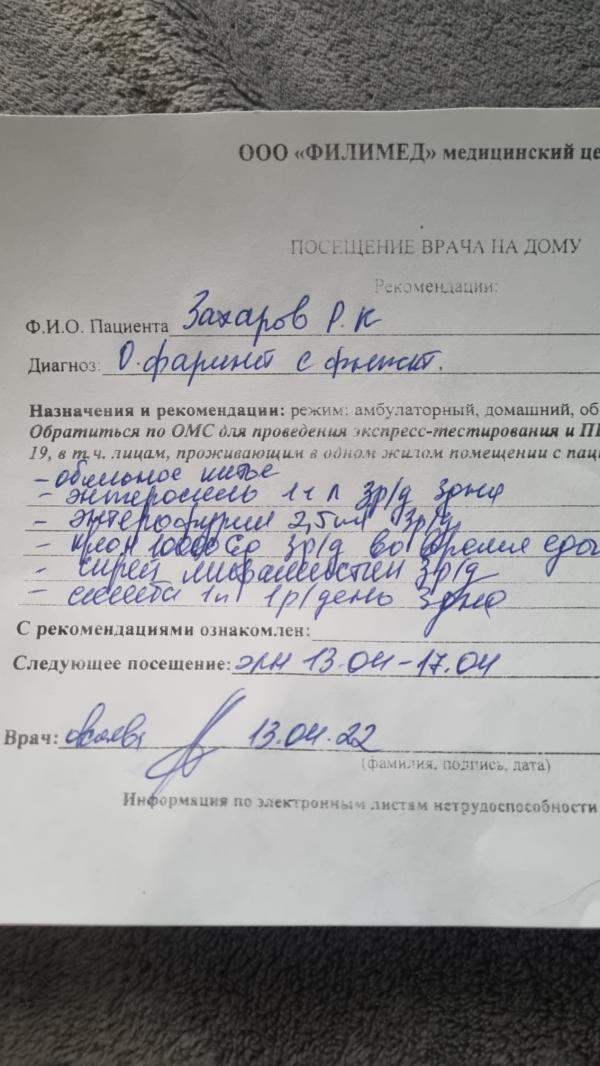 ООО «ФИЛИМЕД» медицинский це
ПОСЕЩЕНИЕ ВРАЧА НА ДОМУ
Рекомендации:
Ф.И.О. Пациента Захаров Р.К
Диагноз: О. фарингит с
Назначения и рекомендации: режим: амбулаторный, домашний, об
Обратиться по ОМС для проведения экспресс-тестирования и ПІ
19, в т.ч. лицам, проживающим в одном жилом помещении с паци
- обильное питье
- энтеросгель 1 ч л 3р/д 3дня
- энтерофурил 2,5мл 3р/д
- креон 10000Ед 3р/д во время еды
- спрей мирамистин 3р/д
- 1п 1р/день 3дня
С рекомендациями ознакомлен:
Следующее посещение: ЭЛН 13.04-17.04
Врач: 13.04.22
(фамилия, подпись, дата)
Информация по электронным листам нетрудоспособности